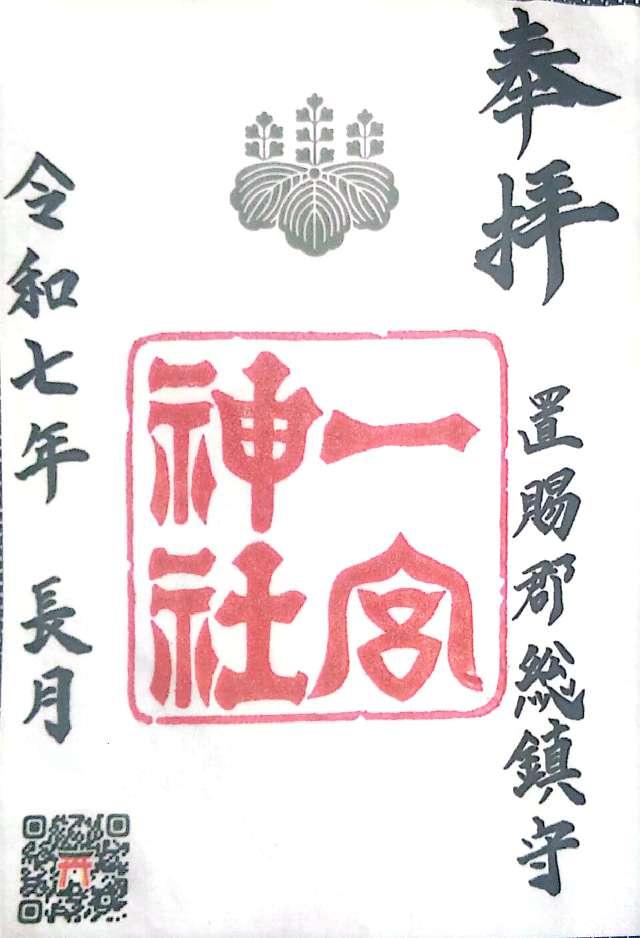 奉拝
置賜郡総鎮守
一宮
神社
令和七年 長月